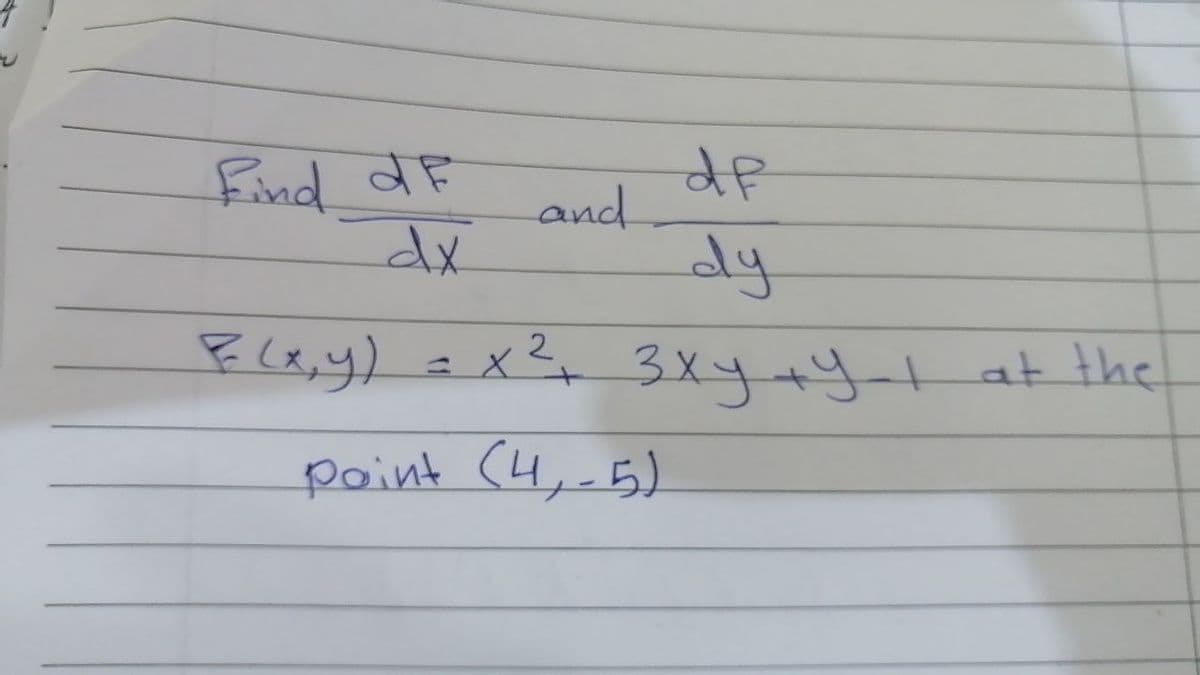 Find dF/dx and dF/dy
F(x,y) = x² + 3xy + y - 1 at the
point (4,-5)